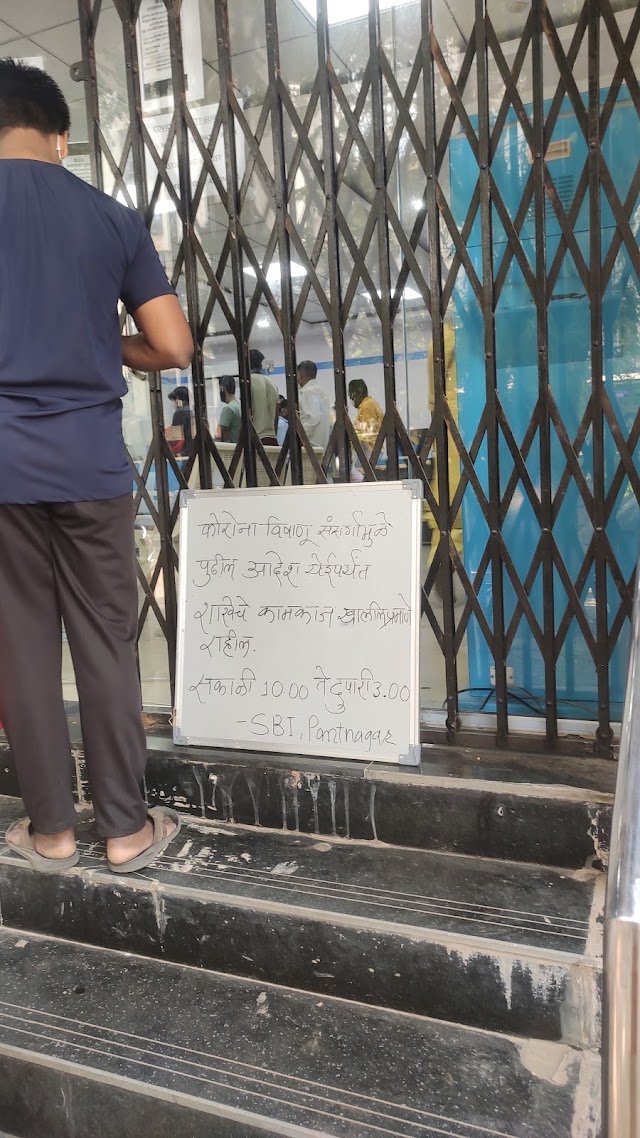 कोरोना विषाणू संसर्गामुळे
पुढील आदेश येईपर्यंत
शाखेचे कामकाज खालीलप्रमाणे
राहील.
सकाळी 10.00 ते दुपारी 3.00
- SBI, Pantnagar